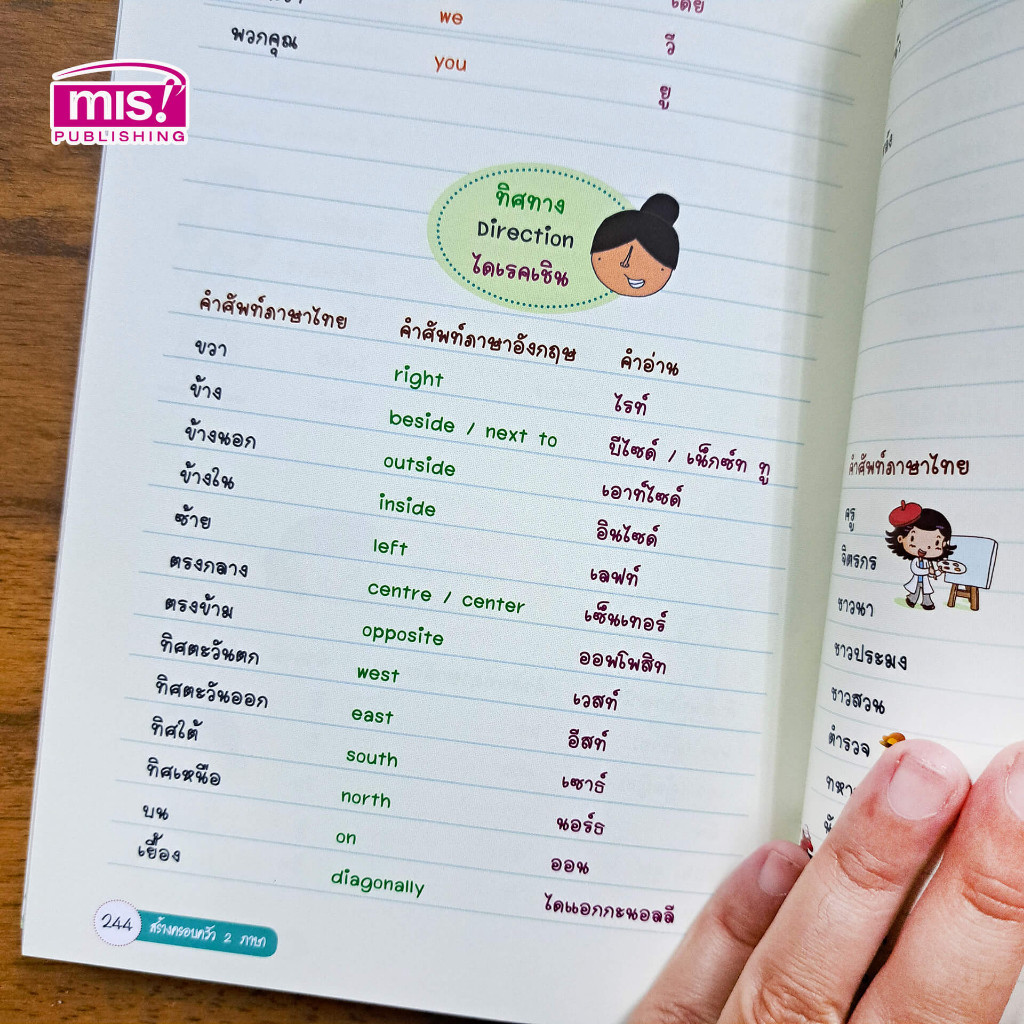 mis!
PUBLISHING
we
วี
พวกคุณ you ยู
ทิศทาง
Direction
ไดเรคเชิน
คำศัพท์ภาษาไทย คำศัพท์ภาษาอังกฤษ คำอ่าน
ขวา right ไรท์
ข้าง beside / next to บีไซด์ / เน็กซ์ท ทู
ข้างนอก outside เอาท์ไซด์
ข้างใน inside อินไซด์
ซ้าย left เลฟท์
ตรงกลาง centre / center เซ็นเทอร์
ตรงข้าม opposite ออพโพสิท
ทิศตะวันตก west เวสท์
ทิศตะวันออก east อีสท์
ทิศใต้ south เซาธ์
ทิศเหนือ north นอร์ธ
บน on ออน
เยื้อง diagonally ไดแอกกะนอลลี
244 สร้างครอบครัว 2 ภาษา
คำศัพท์ภาษาไทย
ครู
จิตรกร
ชาวนา
ชาวประมง
ชาวสวน
ตำรวจ